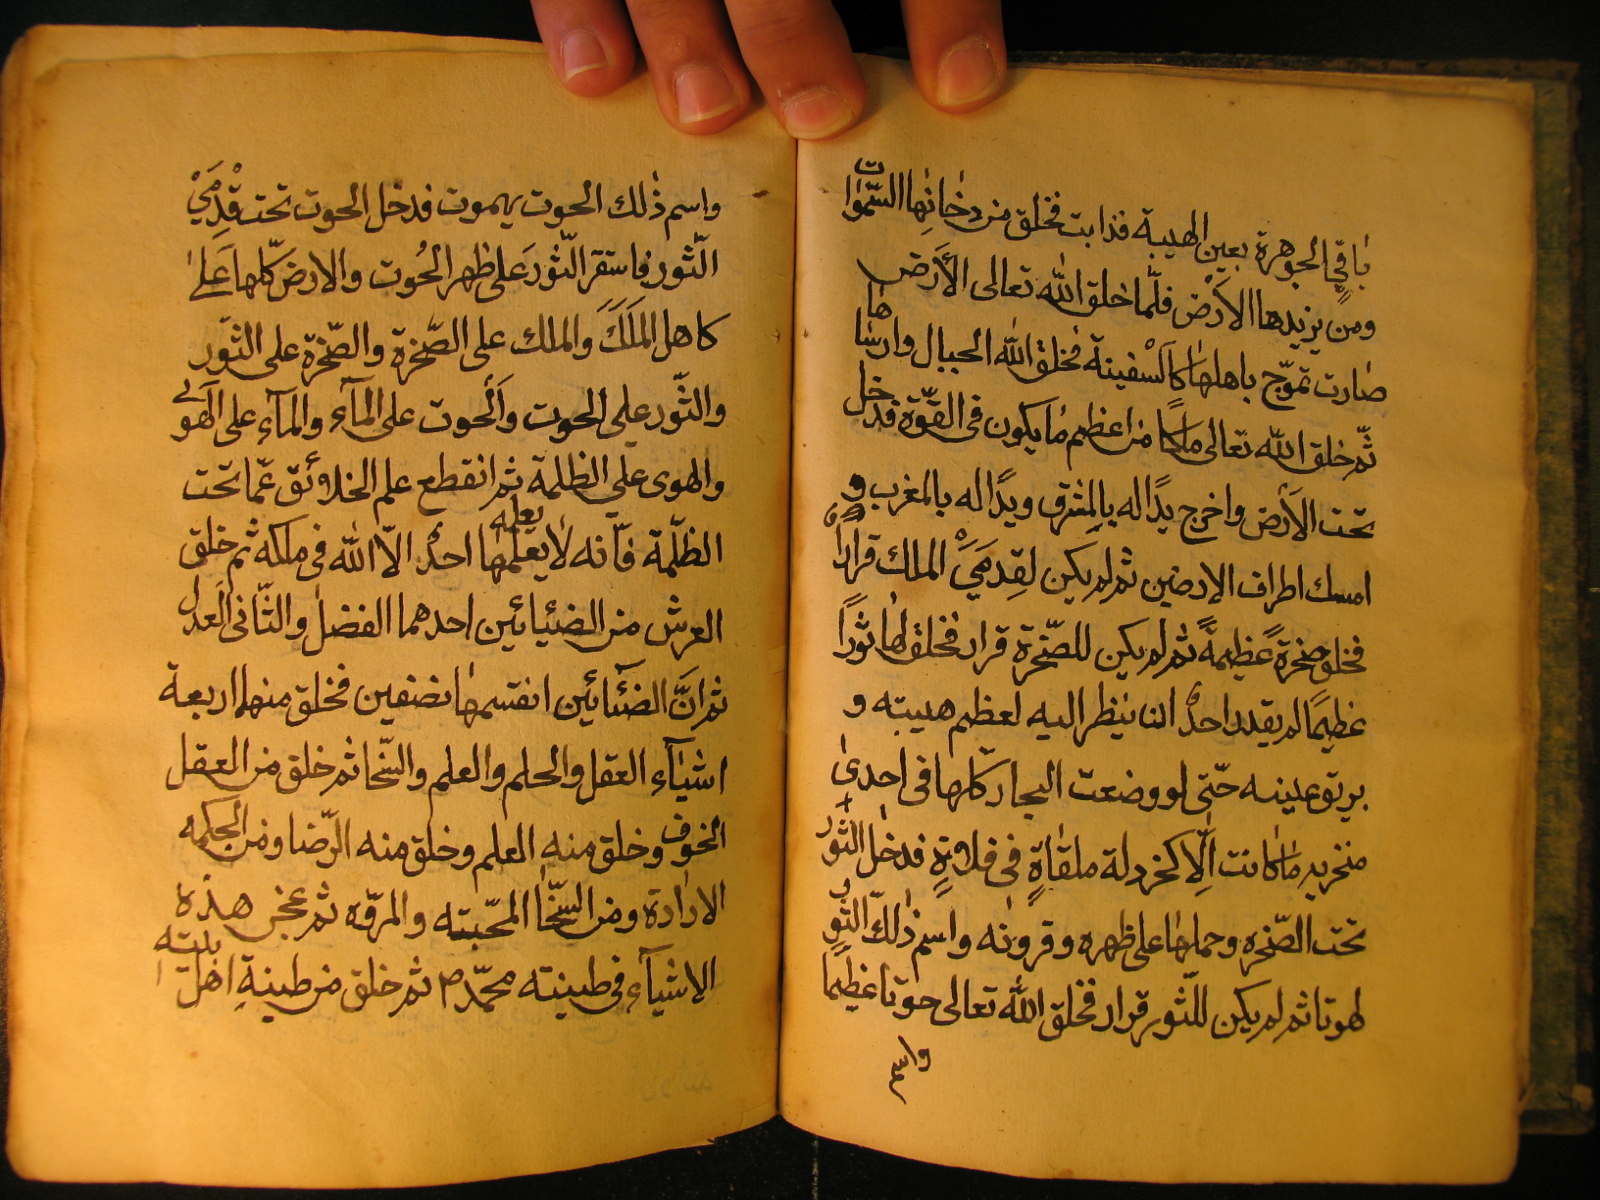 باقي الجوهرة بعين الهيبة فذابت فخلق من دخانها السّموات
ومن يزيدها الأرض فلمّا خلق الله تعالى الأرض
صارت تموّج باهلها كالسفينة فخلق الله الجبال وارساها
ثمّ خلق الله تعالى ملكًا من اعظم ما يكون فى القوّة فدخل
تحت الأرض واخرج يدًا له بالمشرق ويدًا له بالمغرب و
امسك اطراف الارضين ثم لم يكن لقدمَيْ الملك قرارًا
فخلق صخرة عظيمة ثم لم يكن للصّخرة قرار فخلق لها ثورًا
عظيمًا لم يقدر احدٌ ان ينظر اليه لعظم هيبته و
بريق عينه حتّى لو وضعت البحار كلها فى احدى
منخريه ما كانت الّا كخردلة ملقاةٍ فى فلاةٍ فدخل الثّور
تحت الصّخره وحملها على ظهره وقرونه واسم ذلك الثّور
لهوتا ثم لم يكن للثّور قرار فخلق الله تعالى حوتا عظيما
واسم
واسم ذلك الحوت يهموت فدخل الحوت تحت قدمَيْ
الثّور فاستقر الثّور على ظهر الحُوت والارض كلّها على
كاهل المَلَكَ والملك على الصّخرة والصّخرة على الثّور
والثّور على الحوت والحوت على المآء والمآء على الهوى
والهوى على الظلمة ثم انقطع علم الخلائق عمّا تحت
الظلمّة فانّه لا يعلمها يعلمه احدٌ الّا الله فى ملكه ثم خلق
العرش من الضيائين احدهما الفضل والثّانى العدل
ثم انَّ الضيائين انقسمها نصفين فخلق منها اربعة
اشيآء العقل والحلم والعلم والسّخا ثم خلق من العقل
الخوف وخلق منه العلم وخلق منه الرّضا ومن الحكمه
الارادة ومن السّخا المحبّته والمرقّه ثم عجن هذه
الاشيآء فى طينته محمّد م ثم خلق من طينةِ اهل بيته